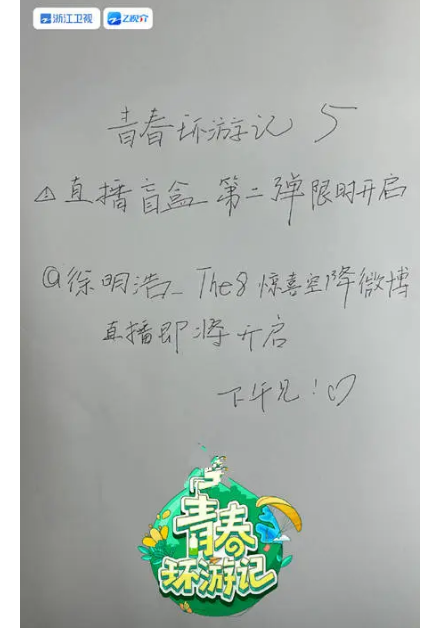 浙江卫视 Z视介
青春环游记 5
⚠直播盲盒 第二弹限时开启
@徐明浩_The8 惊喜空降微博
直播即将开启
下午见!♡
青春
环游记